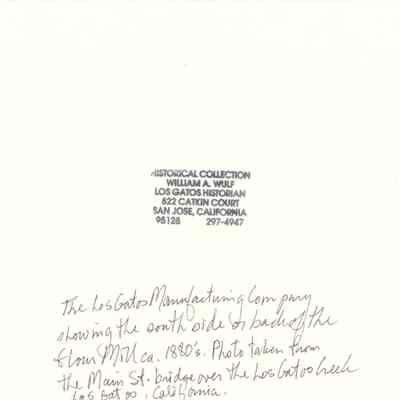 HISTORICAL COLLECTION
WILLIAM A. WULF
LOS GATOS HISTORIAN
522 CATKIN COURT
SAN JOSE, CALIFORNIA
95128 297-4947
The Los Gatos Manufacturing Company
showing the south side or back of the
flour Mill ca. 1880's. Photo taken from
the Main St. bridge over the Los Gatos Creek
Los Gatos, California.